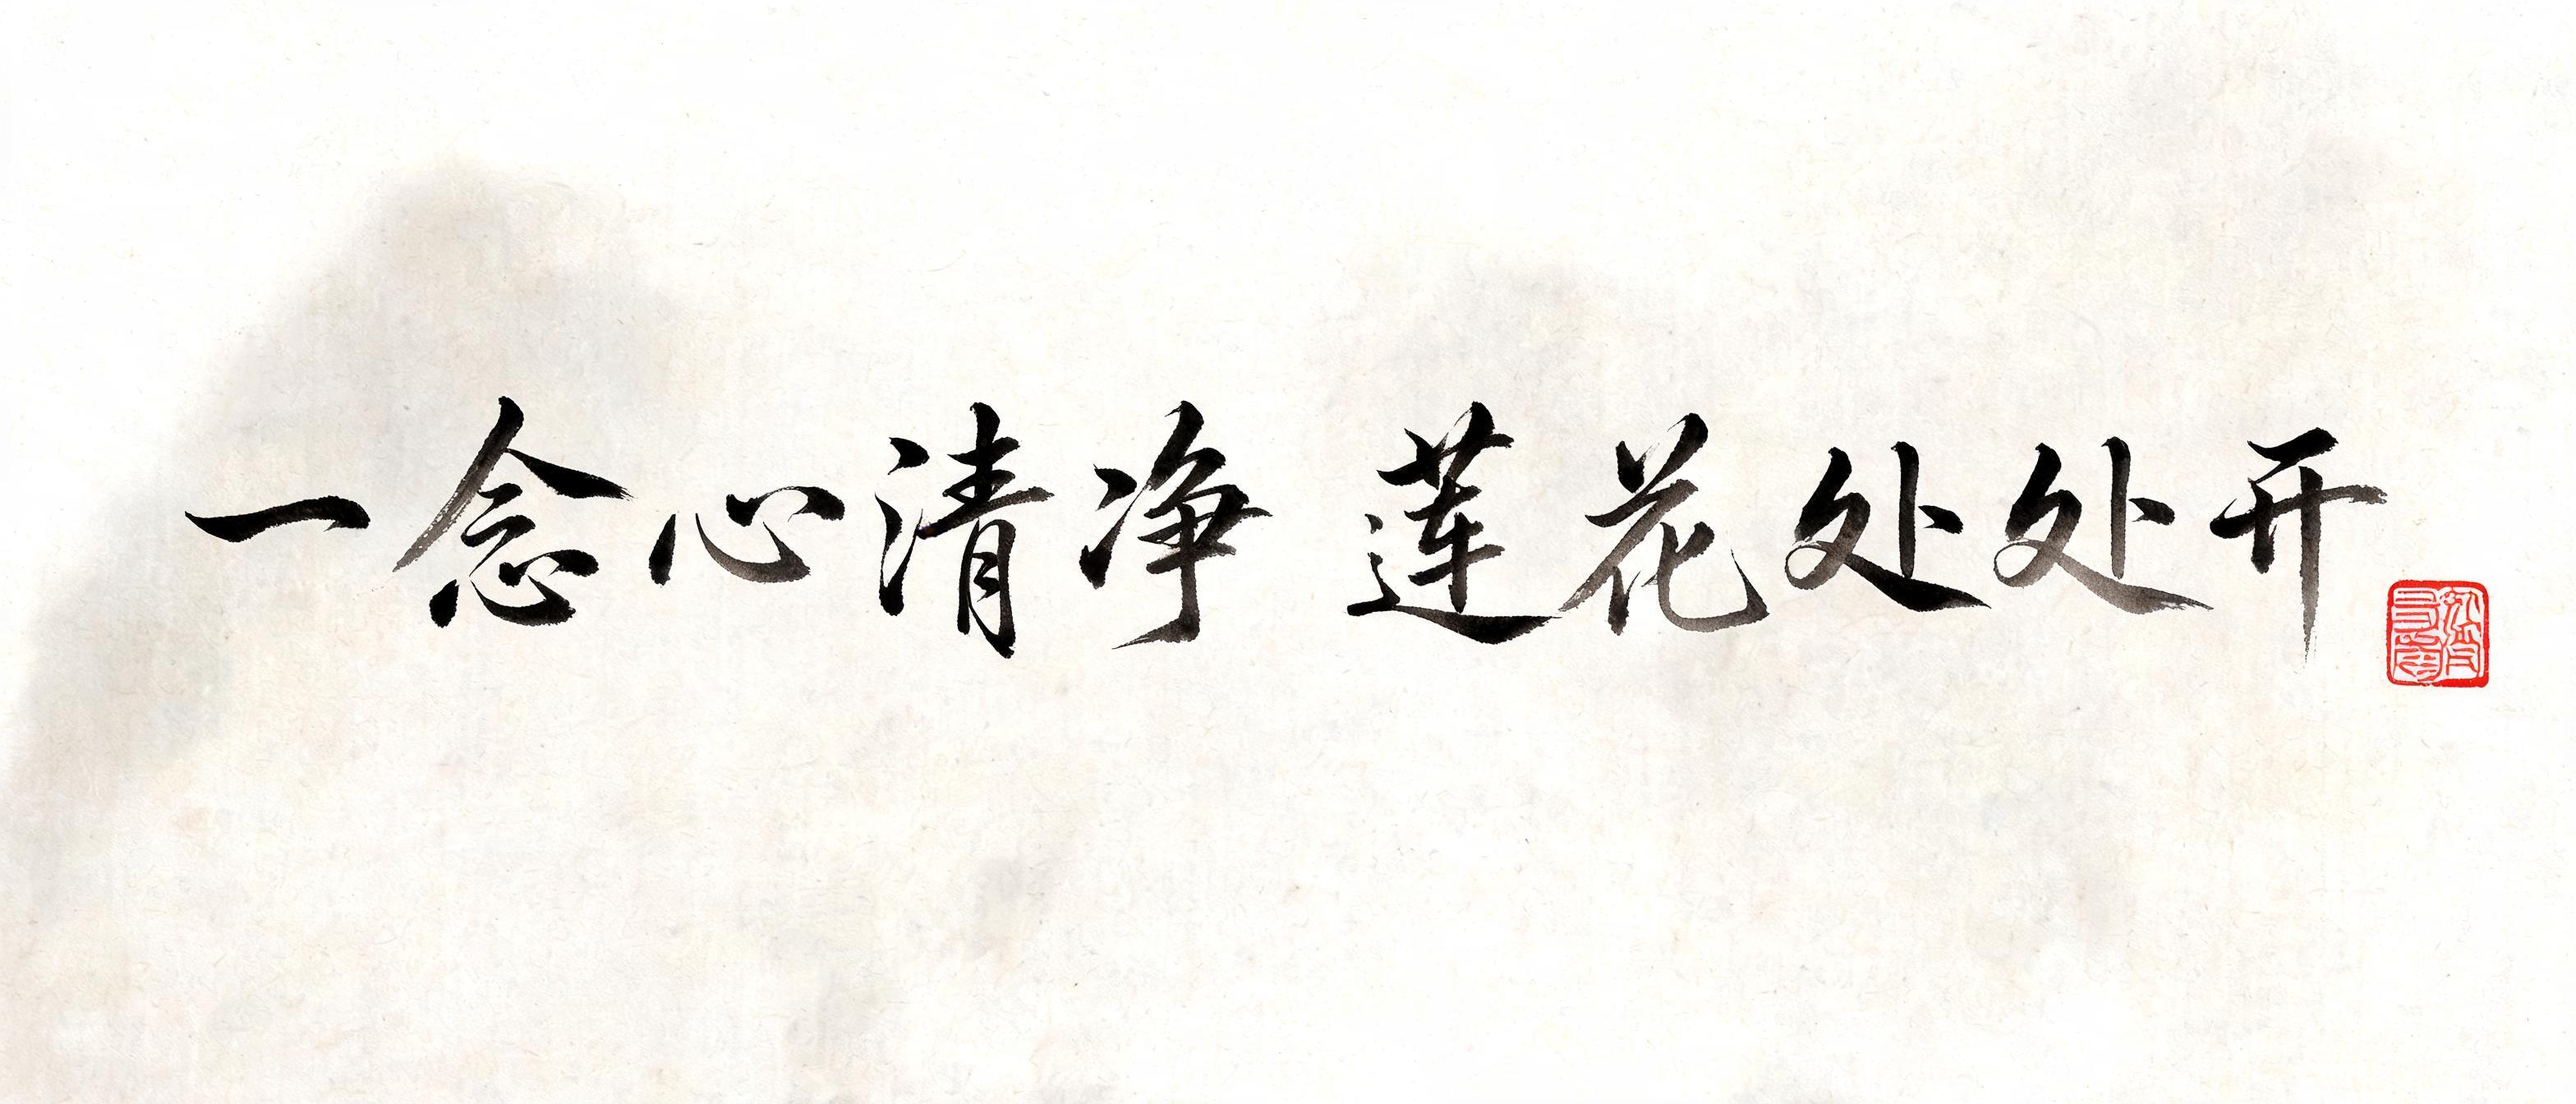 一念心清净 莲花处处开